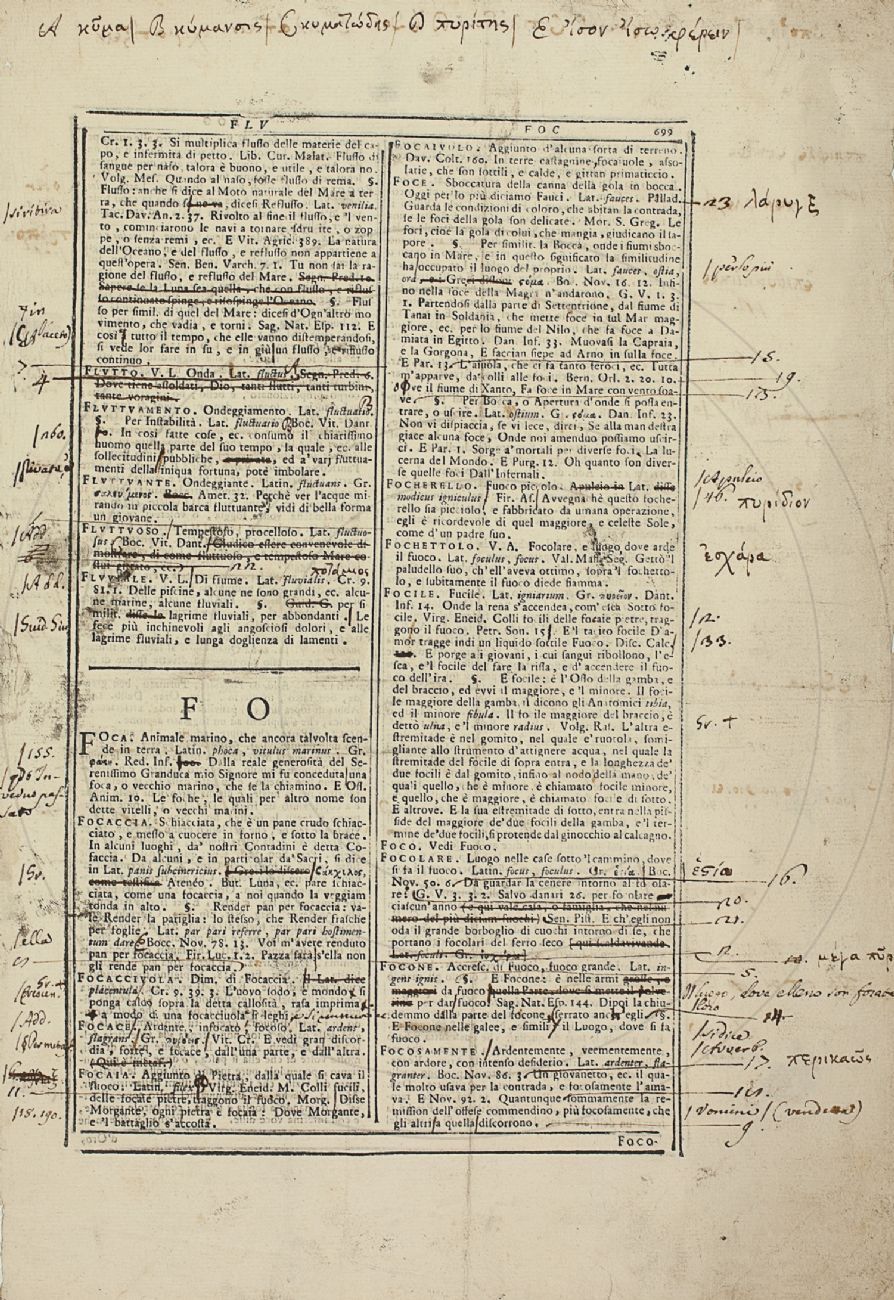 A κῦμα | B κύμανσις | C κυματώδης | D πυρίτης | E
FLV
FOC 699
Cr. 1. 3. 3. Si multiplica flusso delle materie del ca-
po, e infermità di petto. Lib. Cur. Malat. Flusso di
sangue per naso, talora è buono, e utile, e talora no.
Volg. Mes. Quando al naso, fosse flusso di rema. §.
Flusso: anche si dice al Moto naturale del Mare a ter-
ra, che quando dicesi Reflusso. Lat. venilia.
Tac. Dav. An. 2. 37. Rivolto al fine il flusso, e 'l ven-
to, cominciarono le navi a tornare sdrucite, o zop-
pe, o senza remi, ec. E Vit. Agric. 389. La natura
dell'Oceano, e del flusso, e reflusso non appartiene a
quest'opera. Sen. Ben. Varch. 7. 1. Tu non sai la ra-
gione del flusso, e reflusso del Mare. Segn. Pred. 10.
Sapere se la Luna sea quella, che con flusso, e riflus-
so continuato spinge, e rispinge l'Oceano. §. Flus-
so per simil. di quel del Mare: dicesi d'Ogn'altro mo
vimento, che vadia, e torni. Sag. Nat. Esp. 112. E
così tutto il tempo, che elle vanno distemperandosi,
si vede lor fare in su, e in giù un flusso, e riflusso
continuo.
FLUTTO. V. L. Onda. Lat. fluctus. Segn. Pred. 6.
Dove tiene assoldati, Dio, tanti flutti, tanti turbini,
tante voragini.
FLUTTUAMENTO. Ondeggiamento. Lat. fluctuatio.
§. Per Instabilità. Lat. fluctuatio. Boc. Vit. Dant.
In così fatte cose, ec. consumò il chiarissimo
huomo quella parte del suo tempo, la quale, ec. alle
sollecitudini pubbliche, ed a' varj fluttua-
menti della iniqua fortuna, potè imbolare.
FLUTTUANTE. Ondeggiante. Latin. fluctuans. Gr.
Amet. 32. Perchè ver l'acque mi-
rando in piccola barca fluttuante, vidi di bella forma
un giovane.
FLUTTUOSO. Tempestoso, procelloso. Lat. fluctuo-
sus. Boc. Vit. Dant. Giudico essere convenevole di-
mostrare, di come fluttuoso, e tempestoso Mare co-
FLUVIALE. V. L. Di fiume. Lat. fluvialis. Cr. 9.
81. 1. Delle piscine, alcune ne sono grandi, ec. alcu-
ne marine, alcune fluviali. §. Guid. G. per si
milit. disse lo lagrime fluviali, per abbondanti. Le
sese più inchinevoli agli angosciosi dolori, e alle
lagrime fluviali, e lunga doglienza di lamenti.
F O
FOCA. Animale marino, che ancora talvolta scen-
de in terra. Latin. phoca, vitulus marinus. Gr.
φώκη. Red. Ins. Dalla reale generosità del Se-
renissimo Granduca mio Signore mi fu conceduta una
foca, o vecchio marino, che se la chiamino. E Oss.
Anim. 10. Le foche, le quali per altro nome son
dette vitelli, o vecchi marini.
FOCACCIA. Schiacciata, che è un pane crudo schiac-
ciato, e messo a cuocere in forno, e sotto la brace.
In alcuni luoghi, da' nostri Contadini è detta Co-
faccia. Da alcuni, e in particolar da' Sacri, si dice
in Lat. panis subcinericius. I Greci lo dissero
come testifica Ateneo. But. Luna, ec. pare schiac-
ciata, come una focaccia, a noi quando la veggiam
tonda in alto. §. Render pan per focaccia: va-
le Render la pariglia: lo stesso, che Render frasche
per foglie. Lat. par pari referre, par pari hostimen-
tum dare. Bocc. Nov. 78. 13. Voi m'avete renduto
pan per focaccia. Fir. Luc. 1. 2. Pazza sarà s'ella non
gli rende pan per focaccia.
FOCACCIVOLA. Dim. di Focaccia. Lat. dice
placentula. Cr. 9. 39. 3. L'uovo sodo, e mondo si
ponga caldo sopra la detta callosità, rasa imprima,
a modo di una focacciuola si leghi.
FOCACE. Ardente, infocato, focoso. Lat. ardens,
flagrans. Gr. Vit. Cr. E vedi gran discor-
dia, forte, e focace, dall'una parte, e dall'altra.
(Qui è metaf.)
FOCAIA. Aggiunto di Pietra, dalla quale si cava il
fuoco. Latin. silex. Virg. Eneid. M. Colli fucili,
delle focaie pietre, traggono il fuoco. Morg. Disse
Morgante, ogni pietra è focaia: Dove Morgante,
e 'l battaglio s'accosta.
FOCAIVOLO. Aggiunto d'alcuna sorta di terreno.
Dav. Colt. 160. In terre castagnine, focaiuole, asso-
latie, che son sottili, e calde, e gittan primaticcio.
FOCE. Sboccatura della canna della gola in bocca.
Oggi per lo più diciamo Fauci. Lat. fauces. Pallad.
Guarda le condizioni di coloro, che abitan la contrada,
se le foci della gola son delicate. Mor. S. Greg. Le
foci, cioè la gola di colui, che mangia, giudicano il sa-
pore. §. Per similit. la Bocca, onde i fiumi sboc-
cano in Mare, e in questo significato la similitudine
ha occupato il luogo del proprio. Lat. fauces, ostia,
ora, e i Greci dissono στόμα. Bo. Nov. 16. 12. Infi-
no nella foce della Magra n'andarono. G. V. 1. 3.
1. Partendosi dalla parte di Settentrione, dal fiume di
Tanai in Soldania, che mette foce in sul Mar mag-
giore, ec. per lo fiume del Nilo, che fa foce a Da-
miata in Egitto. Dan. Inf. 33. Muovasi la Capraia,
e la Gorgona, E faccian siepe ad Arno in sulla foce.
E Par. 13. L'aiuola, che ci fa tanto feroci, ec. Tutta
m'apparve, da' colli alle foci. Bern. Orl. 2. 20. 10.
Ove il fiume di Xanto, Fa foce in Mare con vento soa-
ve. §. Per Bocca, o Apertura d'onde si possa en-
trare, o uscire. Lat. ostium. G. στόμα. Dan. Inf. 23.
Non vi dispiaccia, se vi lece, dirci, Se alla man destra
giace alcuna foce, Onde noi amendue possiamo uscir-
ci. E Par. 1. Sorge a' mortali per diverse foci, La lu-
cerna del Mondo. E Purg. 12. Oh quanto son diver-
se quelle foci Dall'Infernali.
FOCHERELLO. Fuoco piccolo. Apuleio in Lat. disse
modicus igniculus. Fir. As. Avvegna chè questo foche-
rello sia picciolo, e fabbricato da umana operazione,
egli è ricordevole di quel maggiore, e celeste Sole,
come d'un padre suo.
FOCHETTOLO. V. A. Focolare, e luogo dove arde
il fuoco. Lat. foculus, focus. Val. Mass. Seg. Gettò 'l
paludello suo, ch'ell'aveva ottimo, sopra 'l fochetto-
lo, e subitamente il fuoco diede fiamma.
FOCILE. Fucile. Lat. igniarium. Gr. πυρεῖον. Dant.
Inf. 14. Onde la rena s'accendea, com'esca Sotto fo-
cile. Virg. Eneid. Colli focili delle focaie pietre, trag-
gono il fuoco. Petr. Son. 15. E 'l tacito focile D'a-
mor tragge indi un liquido sottile Fuoco. Disc. Calc.
E porge a i giovani, i cui sangui ribollono, l'e-
sca, e 'l focile del fare la rissa, e d'accendere il fuo-
co dell'ira. §. E focile: è l'Osso della gamba, e
del braccio, ed evvi il maggiore, e 'l minore. Il foci-
le maggiore della gamba, il dicono gli Anatomici tibia,
ed il minore fibula. Il focile maggiore del braccio, è
detto ulna, e 'l minore radius. Volg. Ras. L'altra e-
stremitade è nel gomito, nel quale è ruotola, somi-
gliante allo strumento d'attignere acqua, nel quale la
stremitade del focile di sopra entra, e la longhezza de'
due focili è dal gomito, infino al nodo della mano, de'
quali quello, che è minore, è chiamato focile minore,
e quello, che è maggiore, è chiamato focile di sotto.
E altrove. E la sua estremitade di sotto, entra nella pis-
side del maggiore de' due focili della gamba, e 'l ter-
mine de' due focili, si protende dal ginocchio al calcagno.
FOCO. Vedi Fuoco.
FOCOLARE. Luogo nelle case sotto 'l cammino, dove
si fa il fuoco. Latin. focus, foculus. Gr. Boc.
Nov. 50. 6. Da guardar la cenere intorno al focola-
re. G. V. 3. 3. 2. Salvo danari 26. per focolare
ciascun'anno (e qui vale casa, o famiglia, che nel nu-
mero del più diciam fuochi) Sen. Pist. E ch'egli non
oda il grande borboglio di cuochi intorno di se, che
portano i focolari del ferro seco (qui scaldavivande.
Lat. foculi. Gr. ἐσχάρα)
FOCONE. Accresc. di Fuoco, fuoco grande. Lat. in-
gens ignis. §. E Focone: è nelle armi
da fuoco quella Parte, dove si mette il polve-
rino per dar fuoco. Sag. Nat. Esp. 144. Dipoi la chiu-
demmo dalla parte del focone, serrato anch'egli. §.
E Focone nelle galee, e simili, il Luogo, dove si fa
fuoco.
FOCOSAMENTE. Ardentemente, veementemente,
con ardore, con intenso desiderio. Lat. ardenter, fla-
granter. Boc. Nov. 86. 3. Un giovanetto, ec. il qua-
le molto usava per la contrada, e focosamente l'ama-
va. E Nov. 92. 2. Quantunque sommamente la re-
mission dell'offese commendino, più focosamente, che
gli altri a quella discorrono.
Foco-
4
ποτάμιος
155.
Add.
115. 190.
23 λάρυγξ
15.
19.
13.
Apuleio
46. πυρίδιον
ἐσχάρα
12.
33.
ἑστία 16.
20.
21.
μέγα πῦρ
14.
17. περικαῶς
9